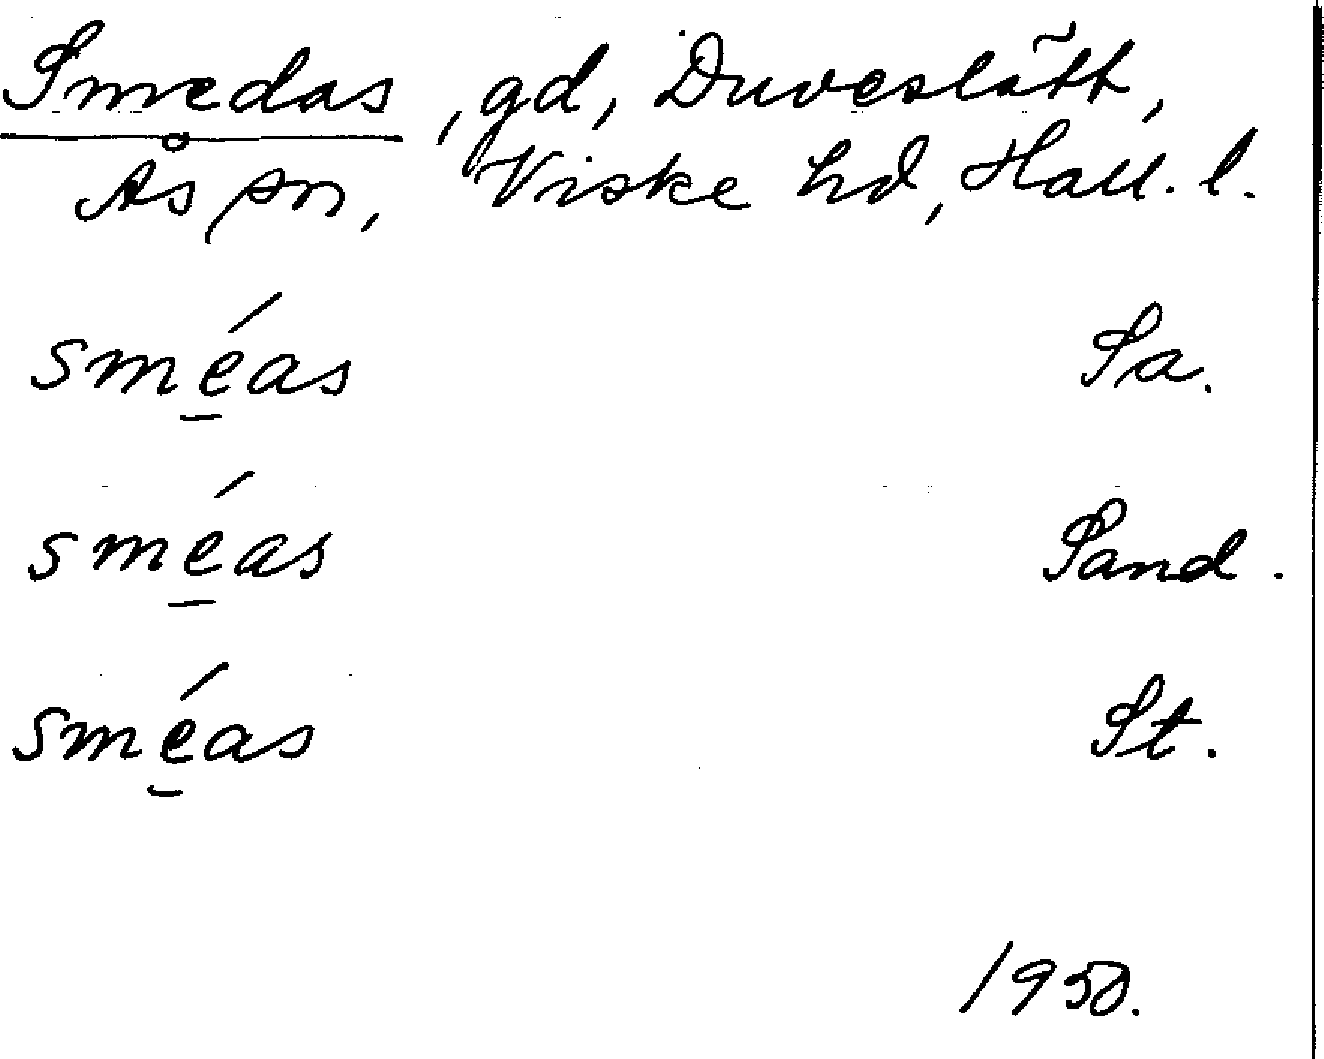 Smedas, gd, Duveslätt,
Ås sn, Viske hd, Hall. l.
smé̲as Sa.
smé̲as Sand.
smé̲as St.
1950.